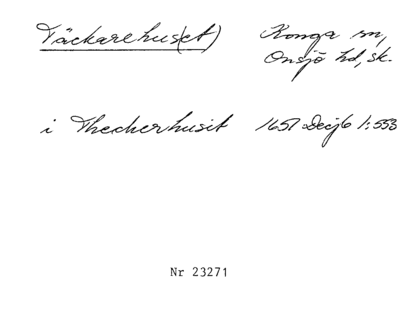 Täckarehus(et) Konga sn,
Onsjö hd, sk.
i Thecherhusit 1651 Decjb 1:553
Nr 23271